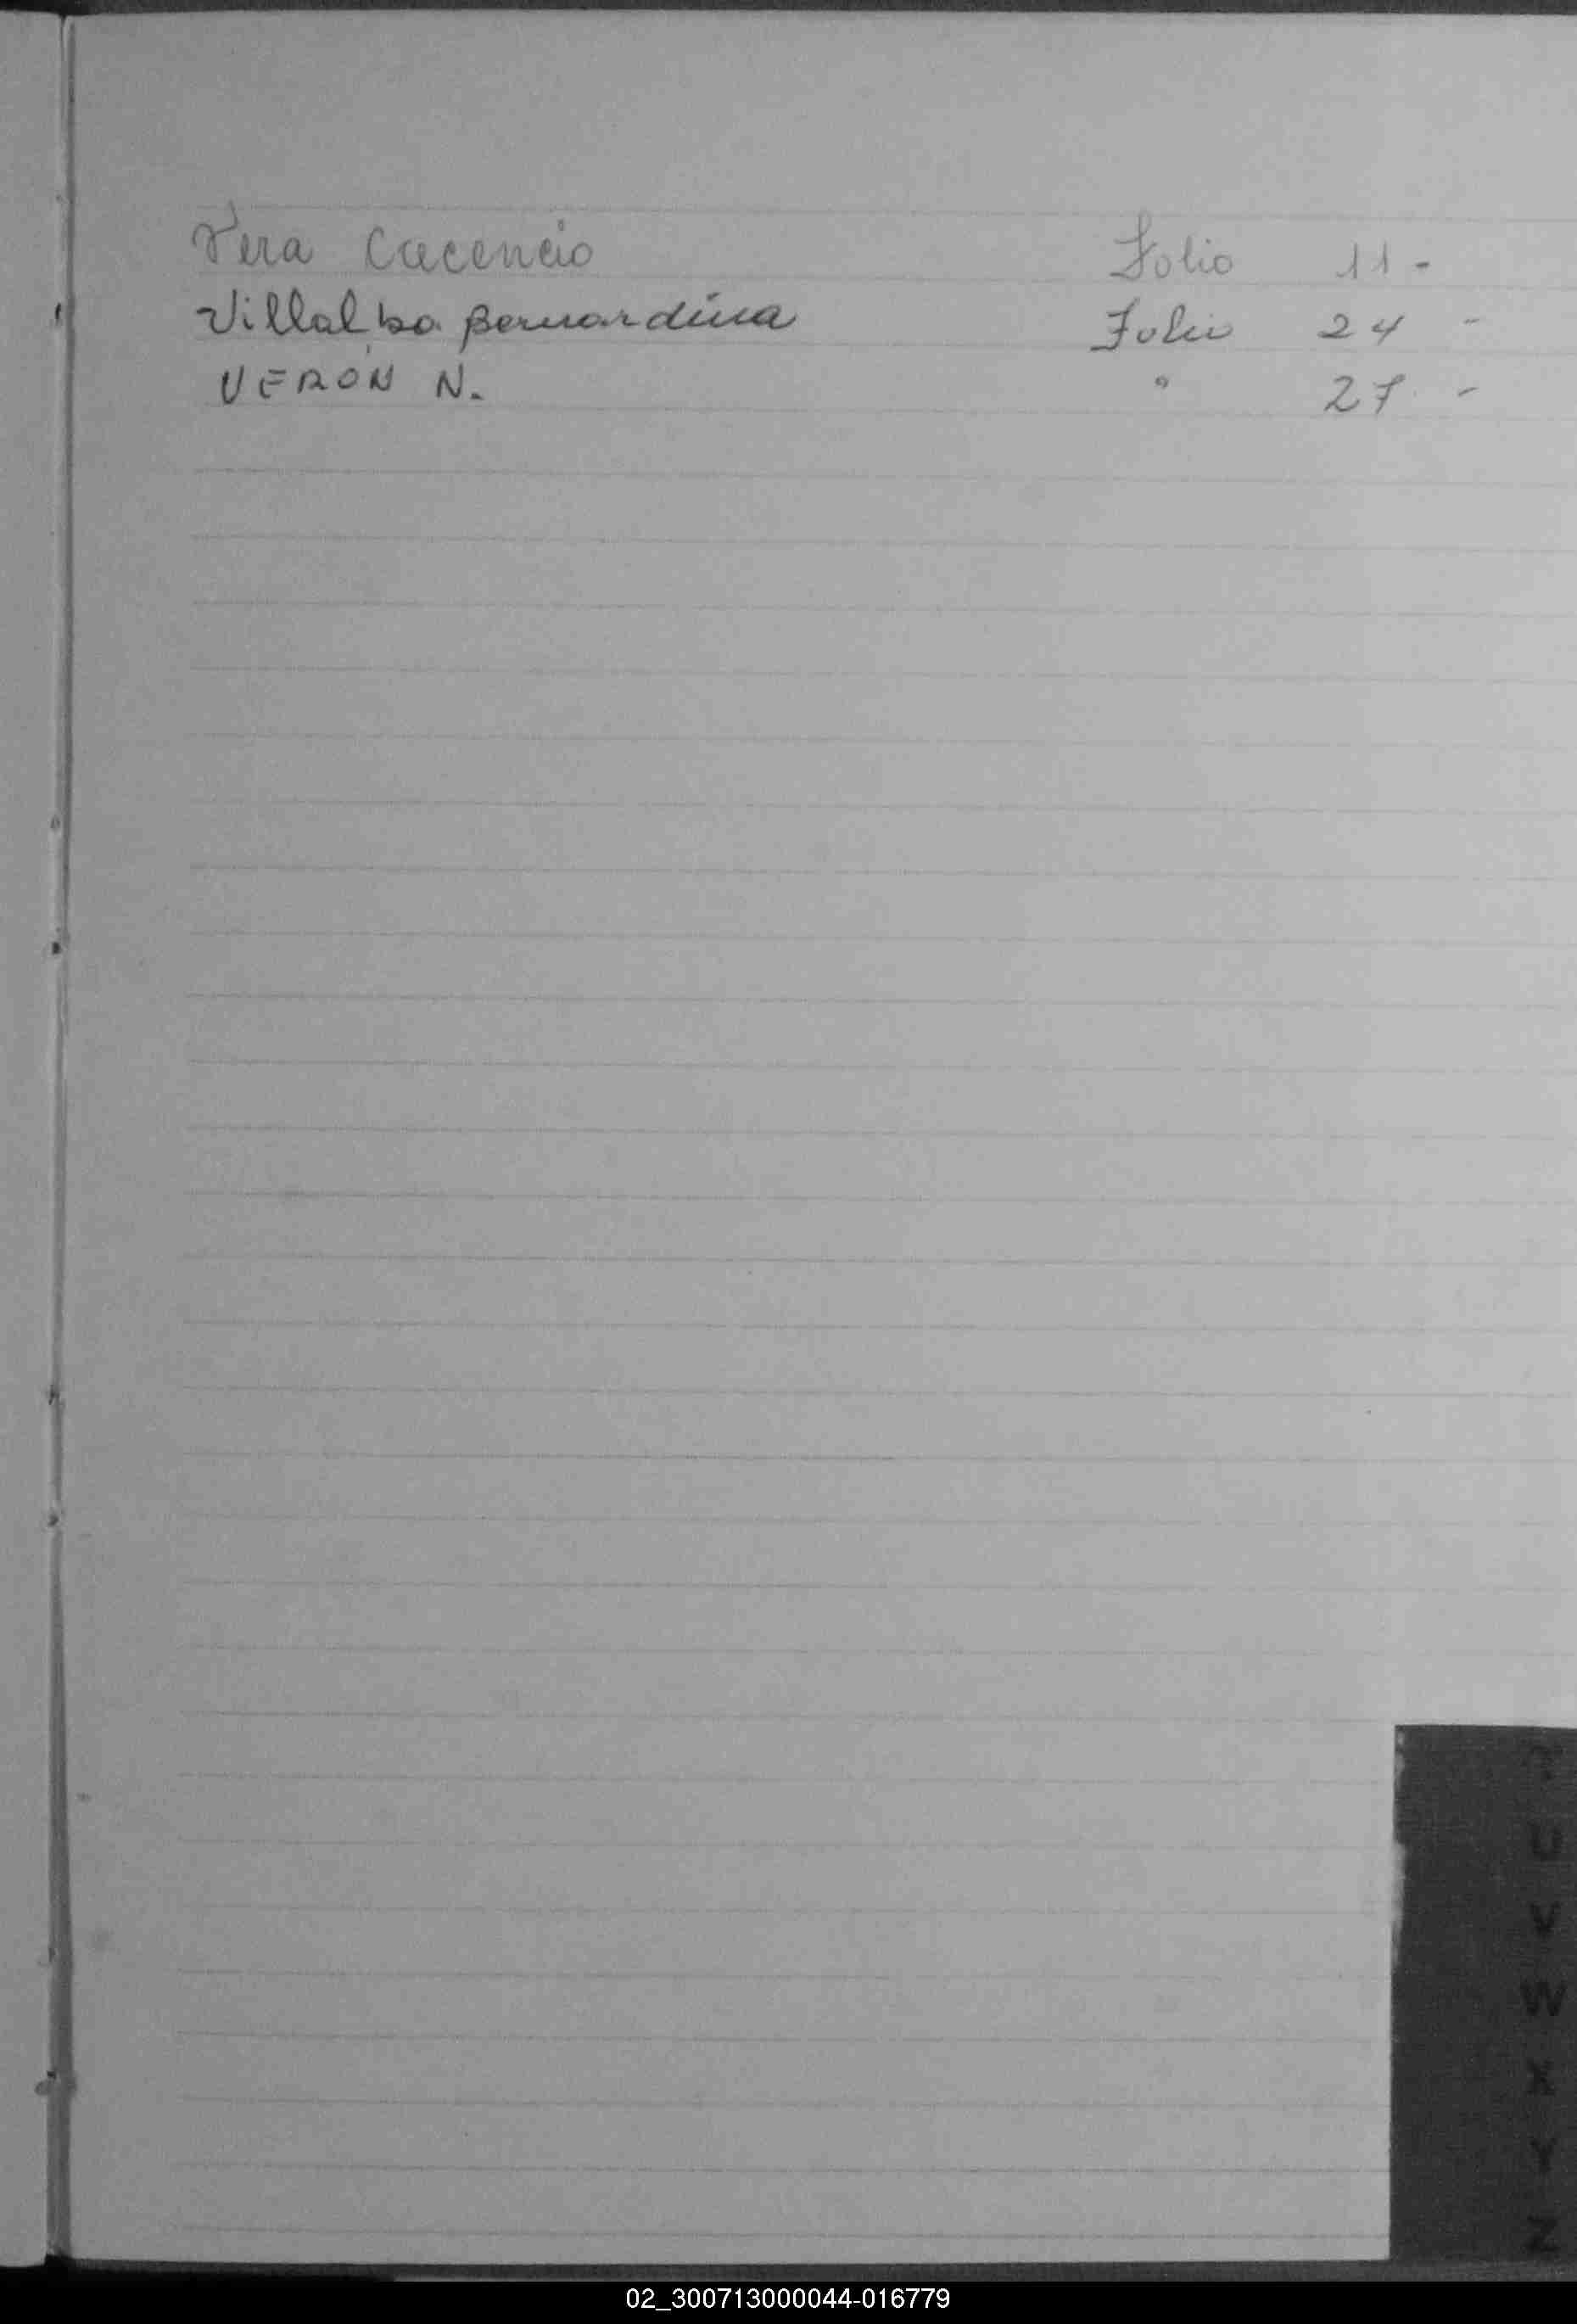 Vera Cacencio Folio 11 -
Villalba Bernardina Folio 24 -
VERÓN N. " 27 -
T
U
V
W
X
Y
Z
02_300713000044-016779